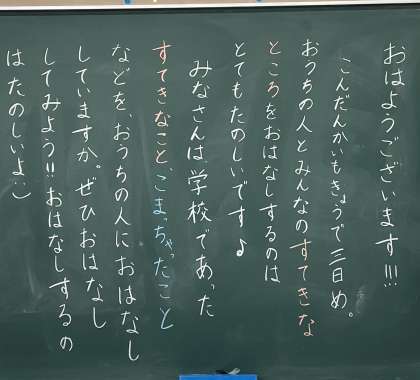 おはようございます!!!
こんだんかいもきょうで三日め。
おうちの人とみんなのすてきな
ところをおはなしするのは
とてもたのしいです♪
みなさんは学校であった
すてきなこと、こまっちゃったこと
などを、おうちの人におはなし
していますか。ぜひおはなし
してみよう!!おはなしするの
はたのしいよ:)